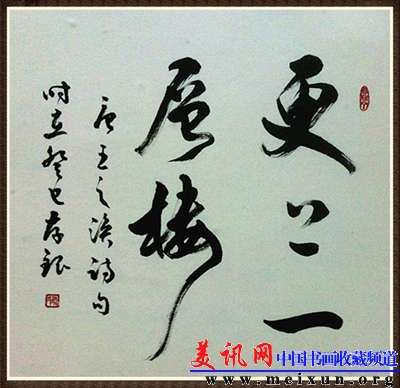 更上一
层楼
唐王之涣诗句
时在癸巳存银
美讯网 中国书画收藏频道
www.meixun.org